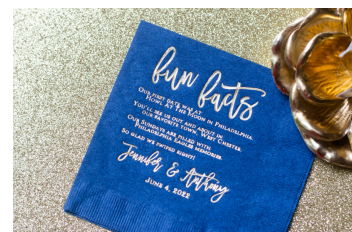 fun facts
Our first date was at
Howl At The Moon in Philadelphia
You'll see us out and about in
our favorite town, West Chester
Our Sundays are filled with
Philadelphia Eagles memories
So glad we swiped right!
Jennifer & Anthony
June 4, 2022